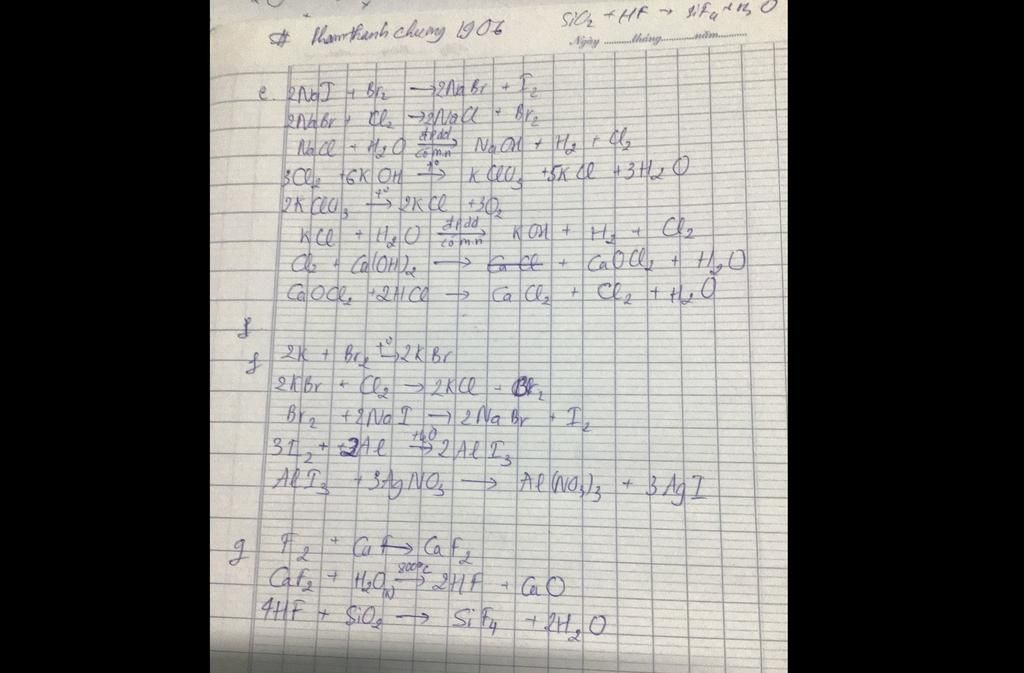 SiO2 + HF → SiF4 + H2O
# Phamthanh chương 1906
Ngày ......... tháng ......... năm .........
e. 2NaI + Br2 → 2NaBr + I2
2NaBr + Cl2 → 2NaCl + Br2
NaCl + H2O đpdd có m.n → NaOH + H2 + Cl2
3Cl2 + 6KOH t° → KClO3 + 5KCl + 3H2O
2KClO3 t° → 2KCl + 3O2
KCl + H2O đpdd có m.n → KOH + H2 + Cl2
Cl2 + Ca(OH)2 → CaCl + CaOCl2 + H2O
CaOCl2 + 2HCl → CaCl2 + Cl2 + H2O
f
f 2K + Br2 t° → 2KBr
2KBr + Cl2 → 2KCl + Br2
Br2 + 2NaI → 2NaBr + I2
3I2 + 2Al H2O → 2AlI3
AlI3 + 3AgNO3 → Al(NO3)3 + 3AgI
g F2 + Ca → CaF2
CaF2 + H2O 800°C → 2HF + CaO
4HF + SiO2 → SiF4 + 2H2O